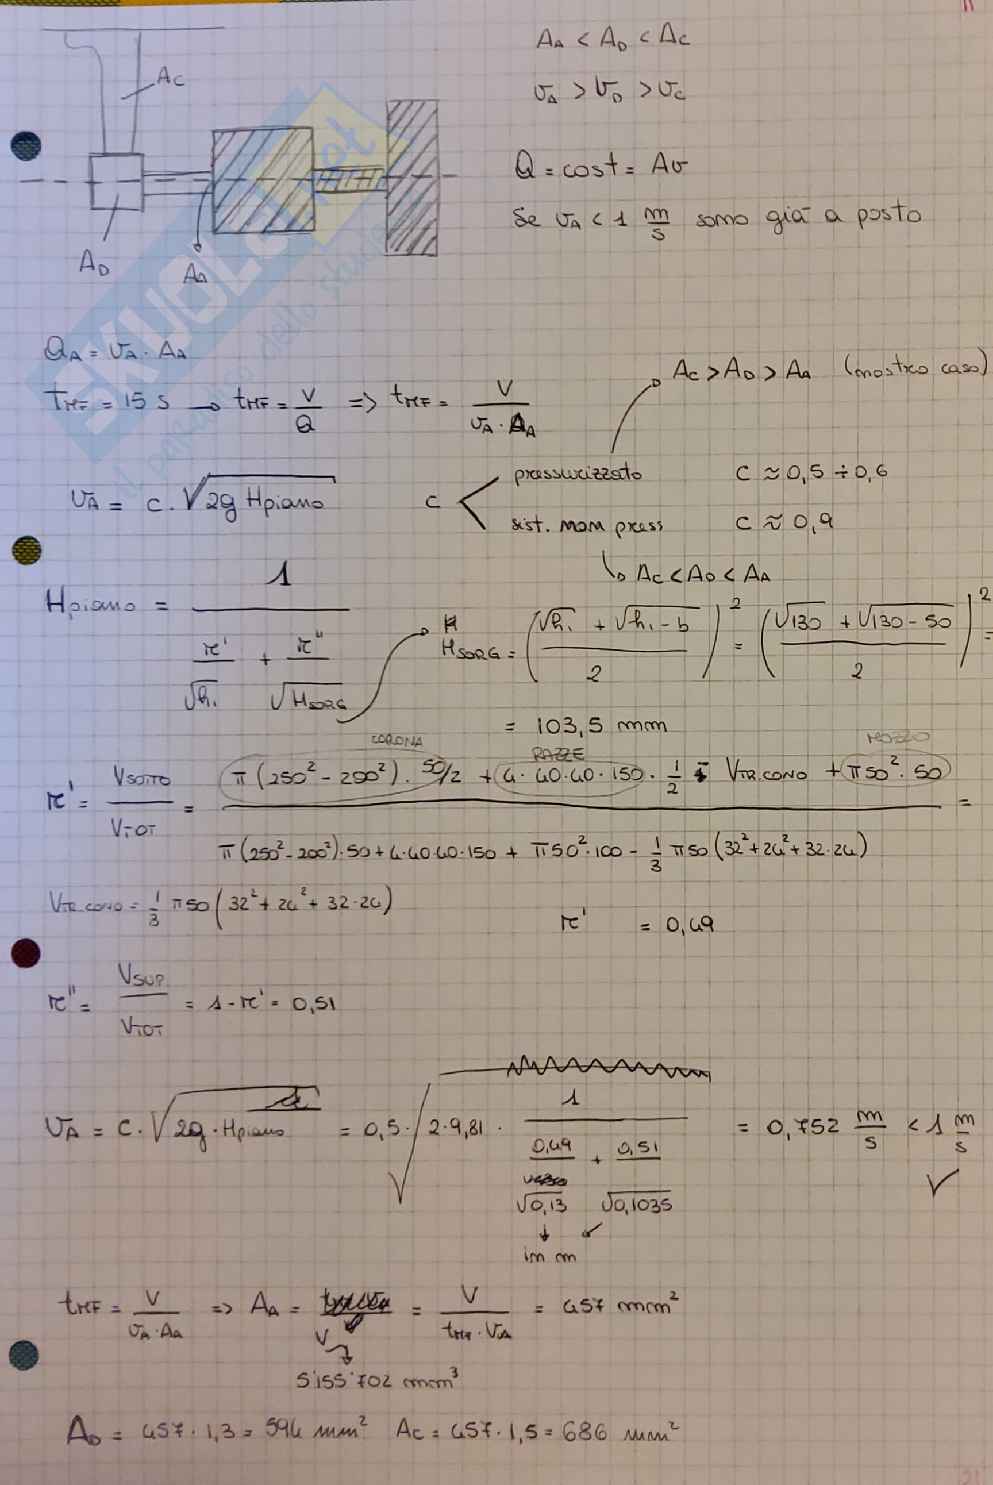 A_A < A_D < A_C
A_C
v_A > v_D > v_C
Q = cost = Av
Se v_A < 1 m/s sono già a posto
A_D
A_A
Q_A = v_A · A_A
A_C > A_D > A_A (nostro caso)
T_MF = 15 s → t_MF = V/Q => t_MF = V/(v_A · A_A)
pressurizzato c ≈ 0,5 ÷ 0,6
v_A = c · √(2g Hpiano) c
sist. non press c ≈ 0,9
↳ A_C < A_D < A_A
Hpiano = 1/(r'/√h_i + r''/√H_SORG)
H_SORG = ((√h_i + √(h_i - b))/2)² = ((√130 + √(130 - 50))/2)² =
= 103,5 mm
CORONA RAZZE MOZZO
r' = V_SOTTO/V_TOT = (π(250² - 200²) · 50/2 + 4 · 40 · 40 · 150 · 1/2 - V_TR.CONO + π50² · 50)/(π(250² - 200²) · 50 + 4 · 40 · 40 · 150 + π50² · 100 - 1/3 π50(32² + 24² + 32 · 24)) =
V_TR.CONO = 1/3 π50(32² + 24² + 32 · 24)
r' = 0,49
r'' = V_SUP/V_TOT = 1 - r' = 0,51
v_A = c · √(2g · Hpiano) = 0,5 · √(2 · 9,81 · 1/(0,49/√0,13 + 0,51/√0,1035)) = 0,752 m/s < 1 m/s ✓
in m
t_MF = V/(v_A · A_A) => A_A = = V/(t_MF · v_A) = 457 mm²
V
5'155'702 mm³
A_D = 457 · 1,3 = 594 mm² A_C = 457 · 1,5 = 686 mm²
SKUOLA.net